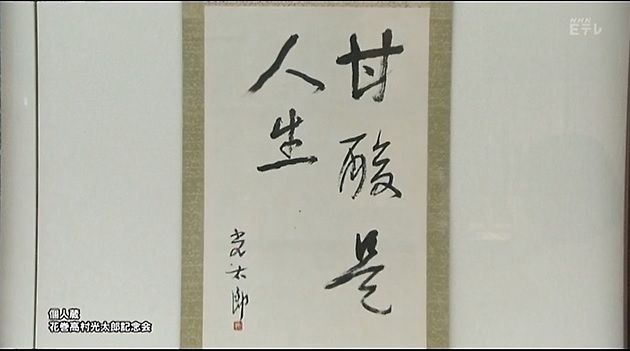 甘酸是
人生
光太郎
NHK
Eテレ
個人蔵
花巻高村光太郎記念会